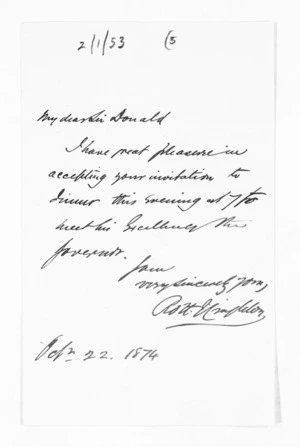 2/1/53 (3
My dear Sir Donald
I have great pleasure in
accepting your invitation to
dinner this Evening at 7 to
meet his Excellency the
Governor.
I am
very sincerely yours,
Octr. 22. 1874